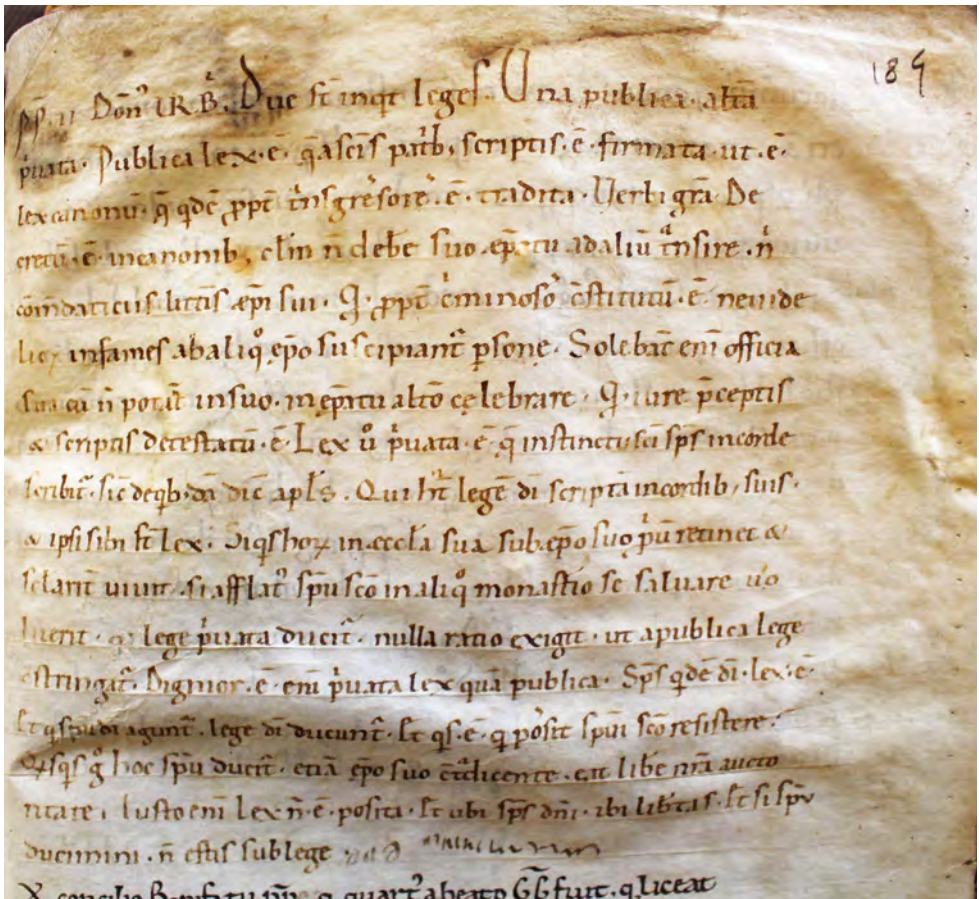 189
PP. II Don̄ UR.B. Due st̄ inqͥt leges. Una publica. alt̄a
pͥuata. Publica lex. ē. q̄ a scīs patͥb; scriptis. ē. firmata. ut. ē.
lex canonū. q̄ qdē ꝓpt̄ tͣnsgressore. ē. tradita. Verbi grā. De
cretū. ē. in canonib; cl̄m n̄ debe suo ep̄atu ad aliū tͣnsire. nͥ
com̄daticiis litt̄is æp̄i sui. Q. ꝓpt̄ cͥminoso c̄stitutū. ē. ne uide
lic; infames ab aliqͦ ep̄o suscipiant̄ ꝑsone. Solebāt enī officia
sua cū n̄ potūt in suo. in ep̄atu alt̄o celebrare. Q. iure p̄ceptis
& scriptis detestatū. ē. Lex uͦ pͥuata. ē. q̄ instinctu scī sp̄s in corde
scribit̄. sic̄ de qͥb;dā dic̄ apl̄s. Qui hn̄t legē dī scriptā in cordib; suis.
& ipsi sibi st̄ lex. Siqͥs hoꝝ in æccl̄a sua sub ep̄o suo pp̄lm retinet &
sclarit̄ uiuit. si afflat᷒ spū scō in aliqͦ monast̄io se saluare uo
luerit. q; lege pͥuata ducit̄. nulla ratio exigit. ut a publica lege
c̄stringat̄. Dignior. ē. enī pͥuata lex quā publica. Sp̄s qͥdē dī. lex. ē.
Et q spū dī agunt̄. lege dī ducunt̄. Et qͥs. ē. q possit spūi scō resistere.
Qͥsqͥs gͦ hoc spū ducit̄. etiā ep̄o suo c̄tͣdicente. eat lib̄e nr̄a aucto
ritate. Iusto enī lex n̄. ē. posita. Et ubi sp̄s dn̄i. ibi lib̄tas. Et si spū
ducimini. n̄ estis sub lege